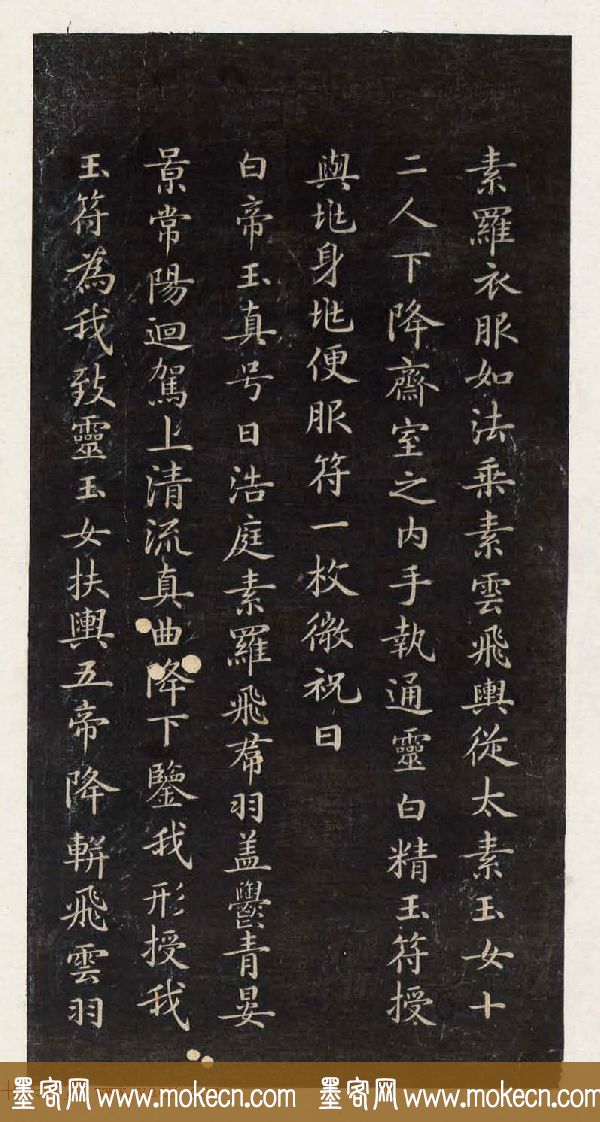 素羅衣服如法乘素雲飛輿從太素玉女十
二人下降齋室之内手執通靈白精玉符授
與兆身兆便服符一枚微祝曰
白帝玉真号曰浩庭素羅飛帬羽盖鬱青晏
景常陽迴駕上清流真曲降下鑒我形授我
玉符為我致靈玉女扶輿五帝降軿飛雲羽
墨客网 www.mokecn.com 墨客网 www.mokecn.com